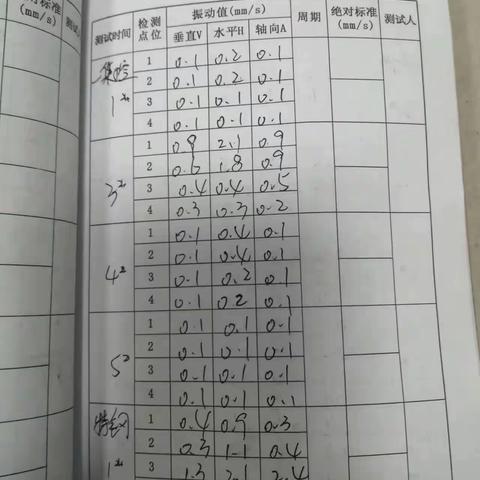 对标准 测试人
(mm/s)
测试时间 检测点位 振动值(mm/s) 周期 绝对标准(mm/s) 测试人
垂直V 水平H 轴向A
1 0.1 0.2 0.1
2 0.1 0.2 0.1
1# 3 0.1 0.1 0.1
4 0.1 0.1 0.1
1 0.8 2.1 0.9
2 0.6 1.8 0.9
3# 3 0.4 0.4 0.5
4 0.3 0.3 0.2
1 0.1 0.4 0.1
2 0.1 0.4 0.1
4# 3 0.1 0.2 0.1
4 0.1 0.2 0.1
1 0.1 0.1 0.1
2 0.1 0.1 0.1
5# 3 0.1 0.1 0.1
4 0.1 0.1 0.1
1 0.4 0.9 0.3
2 0.3 1.1 0.4
1# 3 1.3 2.1 2.4